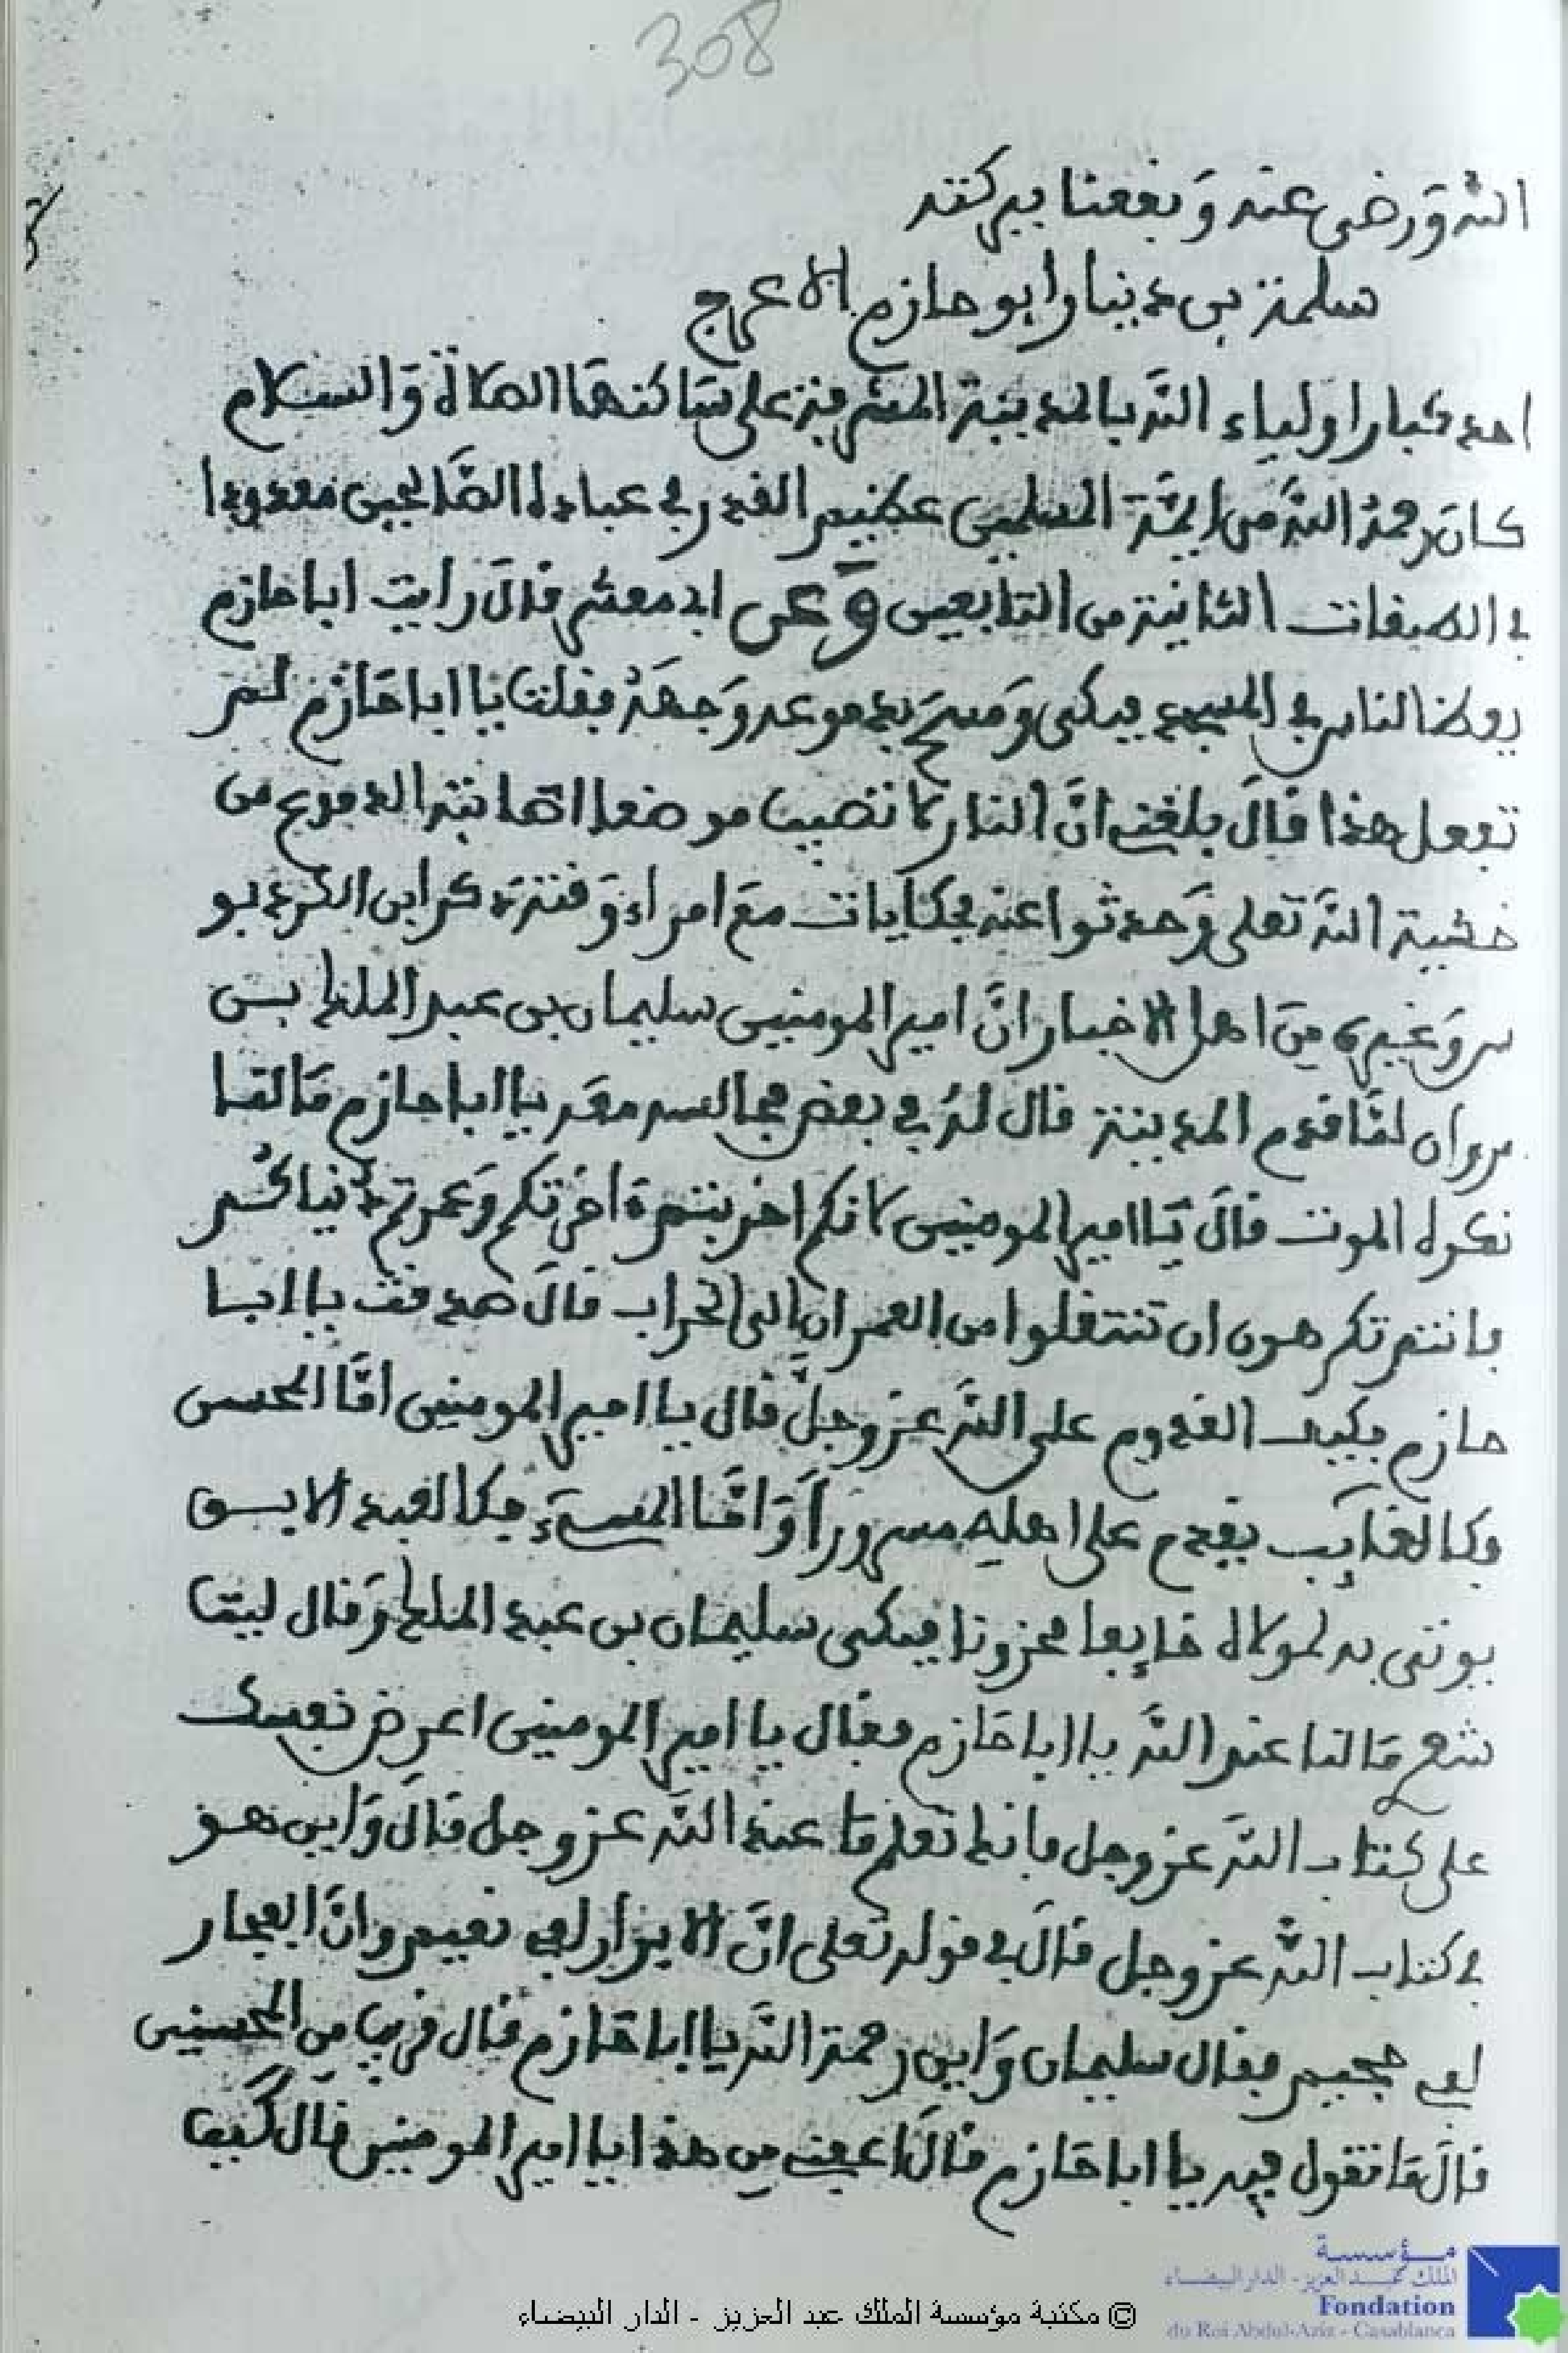 308
الله ورضى عنه وَنفعنا ببركته
سلمة بن دينار ابو حازم الاعرج
احد كبار اولياء الله بالمدينة المشرفة على سَاكنهَا الصلاة وَالسلام
كان رحمهُ الله من ايمّة المسلمين عظيم القدر في عباده الصَّالحين معدودا
في الطبقات الثانية من التابعين وَعن ابي معشر قال رايت ابا حازم
يعظ الناس في المسجد فبكى وَمسحَ بدموعه وَجهَهُ فقلت يا ابا حَازم لم
تفعل هذا قال بلغني انَّ النار لا تصيب موضعا اصابته الدموع من
خشية الله تعلى وَحدثوا عنه بحكايات معَ امراء وَقته ذكر ابن الكردبو
س وَغيره مِن اهل الاخبار انَّ امير المومنين سليمان بن عبد الملك بن
مروان لمَّا قدم المدينة قال لهُ في بعض مجالسه معَه يا ابا حازم مَا لنا
نكره الموت قالَ يَا امير المومنين لانكم اخربتم ءاخرتكم وَعمرتم دُنياكُم
فانتم تكرهون ان تنتقلوا من العمران الى الخراب قالَ صدقت يا ابا
حازم فكيف القدوم على الله عز وجلَّ قال يا امير المومنين امَّا المحسن
فكالغايب يقدم على اهله مسروراً وَامَّا المسيء فكالعبد الابق
يوتى به لمولاه خايفا محزونا فبكى سليمان بن عبد الملك وَقال ليت
شعري مَا لنا عند الله يا ابا حَازم فقال يا امير المومنين اعرض نفسك
على كتاب الله عز وجل فانك تعلم مَا عند الله عز وجل قالَ وَاين هو
في كتاب الله عز وجل قالَ في قوله تعلى انَّ الابرار لفي نعيم وانَّ الفجار
لفي جحيم فقال سليمان وَاين رحمة الله يا ابا حَازم قال قريب من المحسنين
قالَ مَا تقول فيه يا ابا حَازم قالَ اعفني من هذا يا امير المومنين قال كَيف
© مكتبة مؤسسة الملك عبد العزيز - الدار البيضاء
مؤسسة
الملك عبد العزيز - الدار البيضاء
Fondation
du Roi Abdul-Aziz - Casablanca